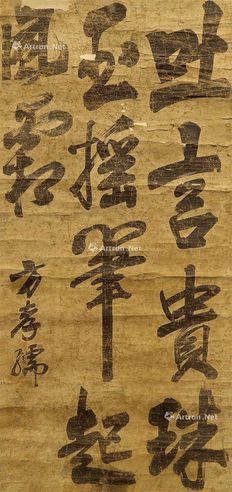 吐言貴珠
玉搖筆起
風霜
方孝孺
Artron.Net
Artron.Net
Artron.Net
Artron.Net